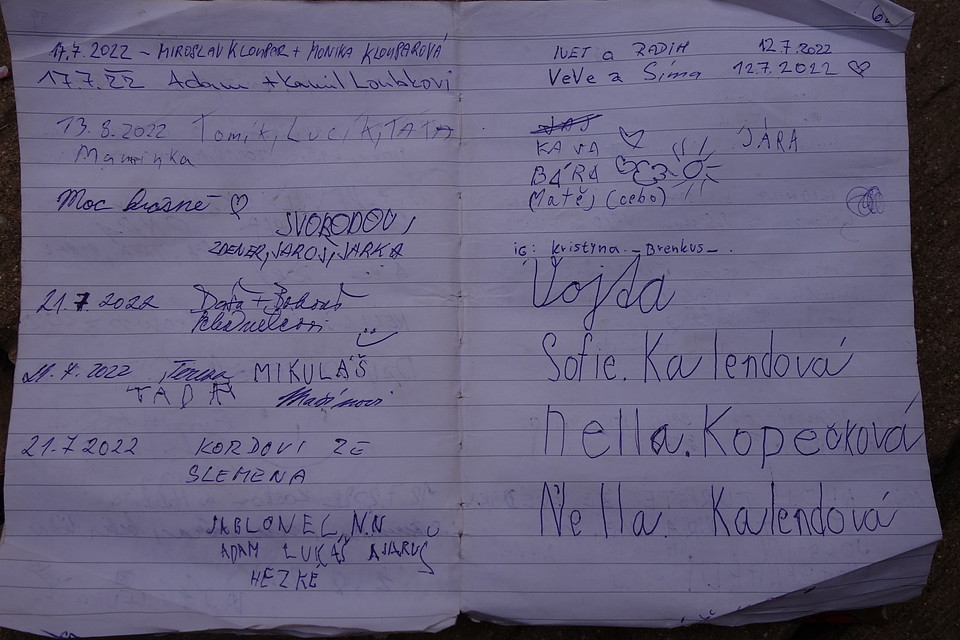 17.7.2022 - MIROSLAV KLOUPAR + MONIKA KLOUPAROVÁ
17.7.22 Adam + Kamil Loubkovi
13.8.2022 Tomík, Lucík, TÁTA
Maminka
Moc krásné
SVOBODOVI
ZDENEK, JAROŠ, JARKA
21.7.2022
21.7.2022 Tereza MIKULÁŠ
TÁDA
21.7.2022 KORDOVI ZE
SLEMENA
JABLONEC N.N
ADAM LUKÁŠ
HEZKÉ
6
IVET a RADIM 12.7.2022
VeVe a Sima 12.7.2022
JÁRA
KÁVA
BÁRA
Matěj (cebo)
ig: kristyna_Brenkus_.
Vojta
Sofie. Kalendová
Nella. Kopečková
Nella. Kalendová